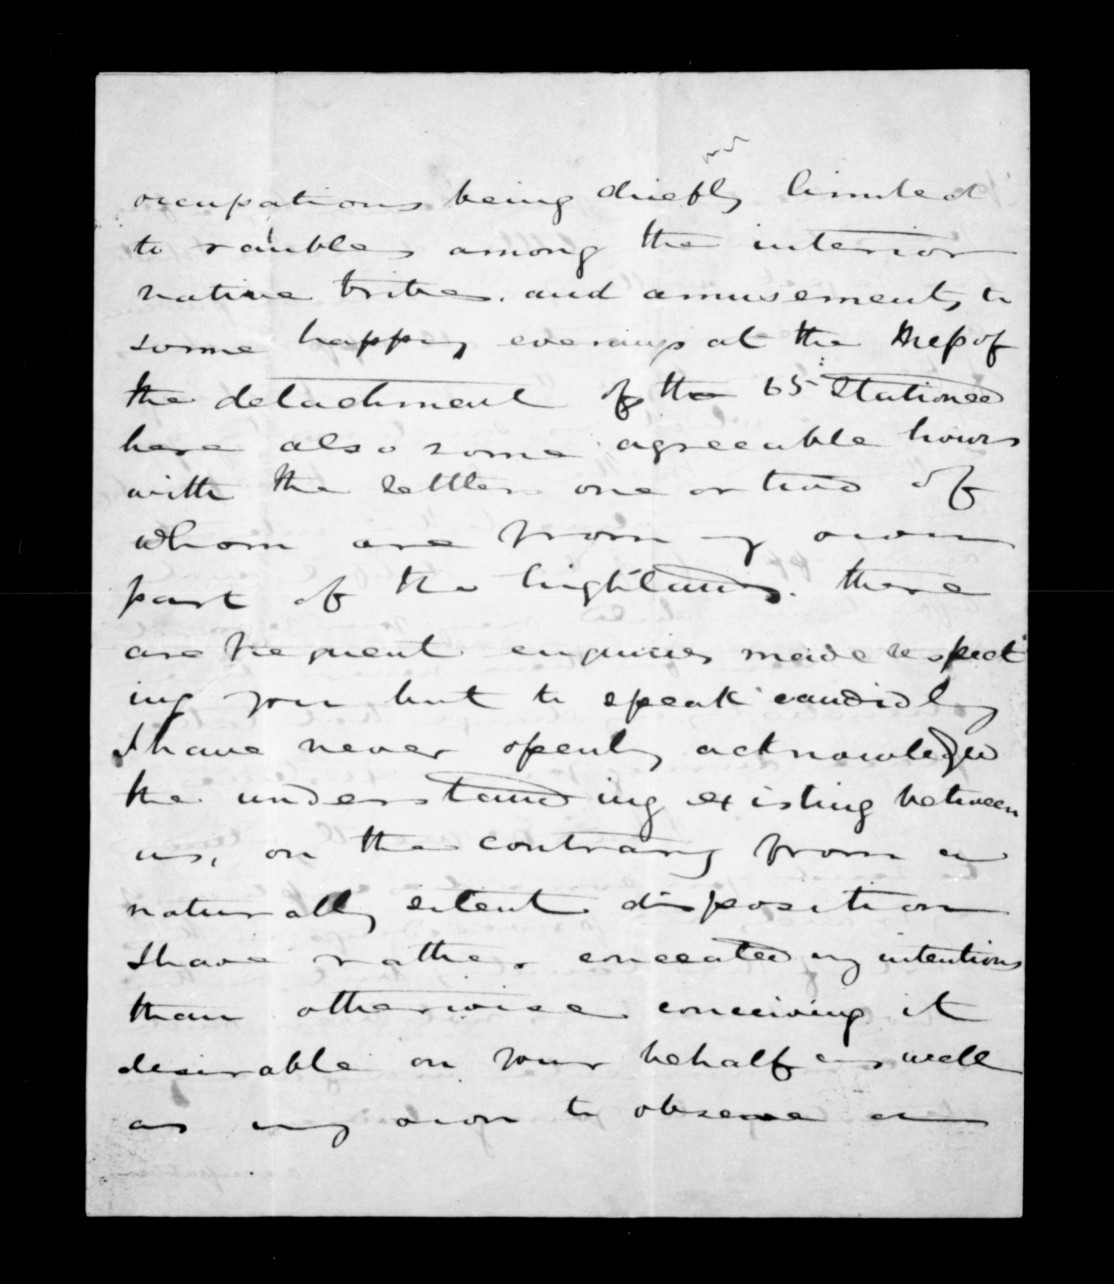 occupations being chiefly limited
to rambles among the interior
native tribes and amusements, to
some happy evenings at the Mess of
the detachment of the 65 Stationed
here also some agreeable hours
with the settlers one or two of
whom are from my own
part of the highlands. there
are frequent enquiries made respect
ing you but to speak candidly
I have never openly acknowledged
the understanding existing between
us, on the contrary from a
naturally silent disposition
I have rather concealed my intentions
than otherwise conceiving it
desirable on your behalf as well
as my own to observe a